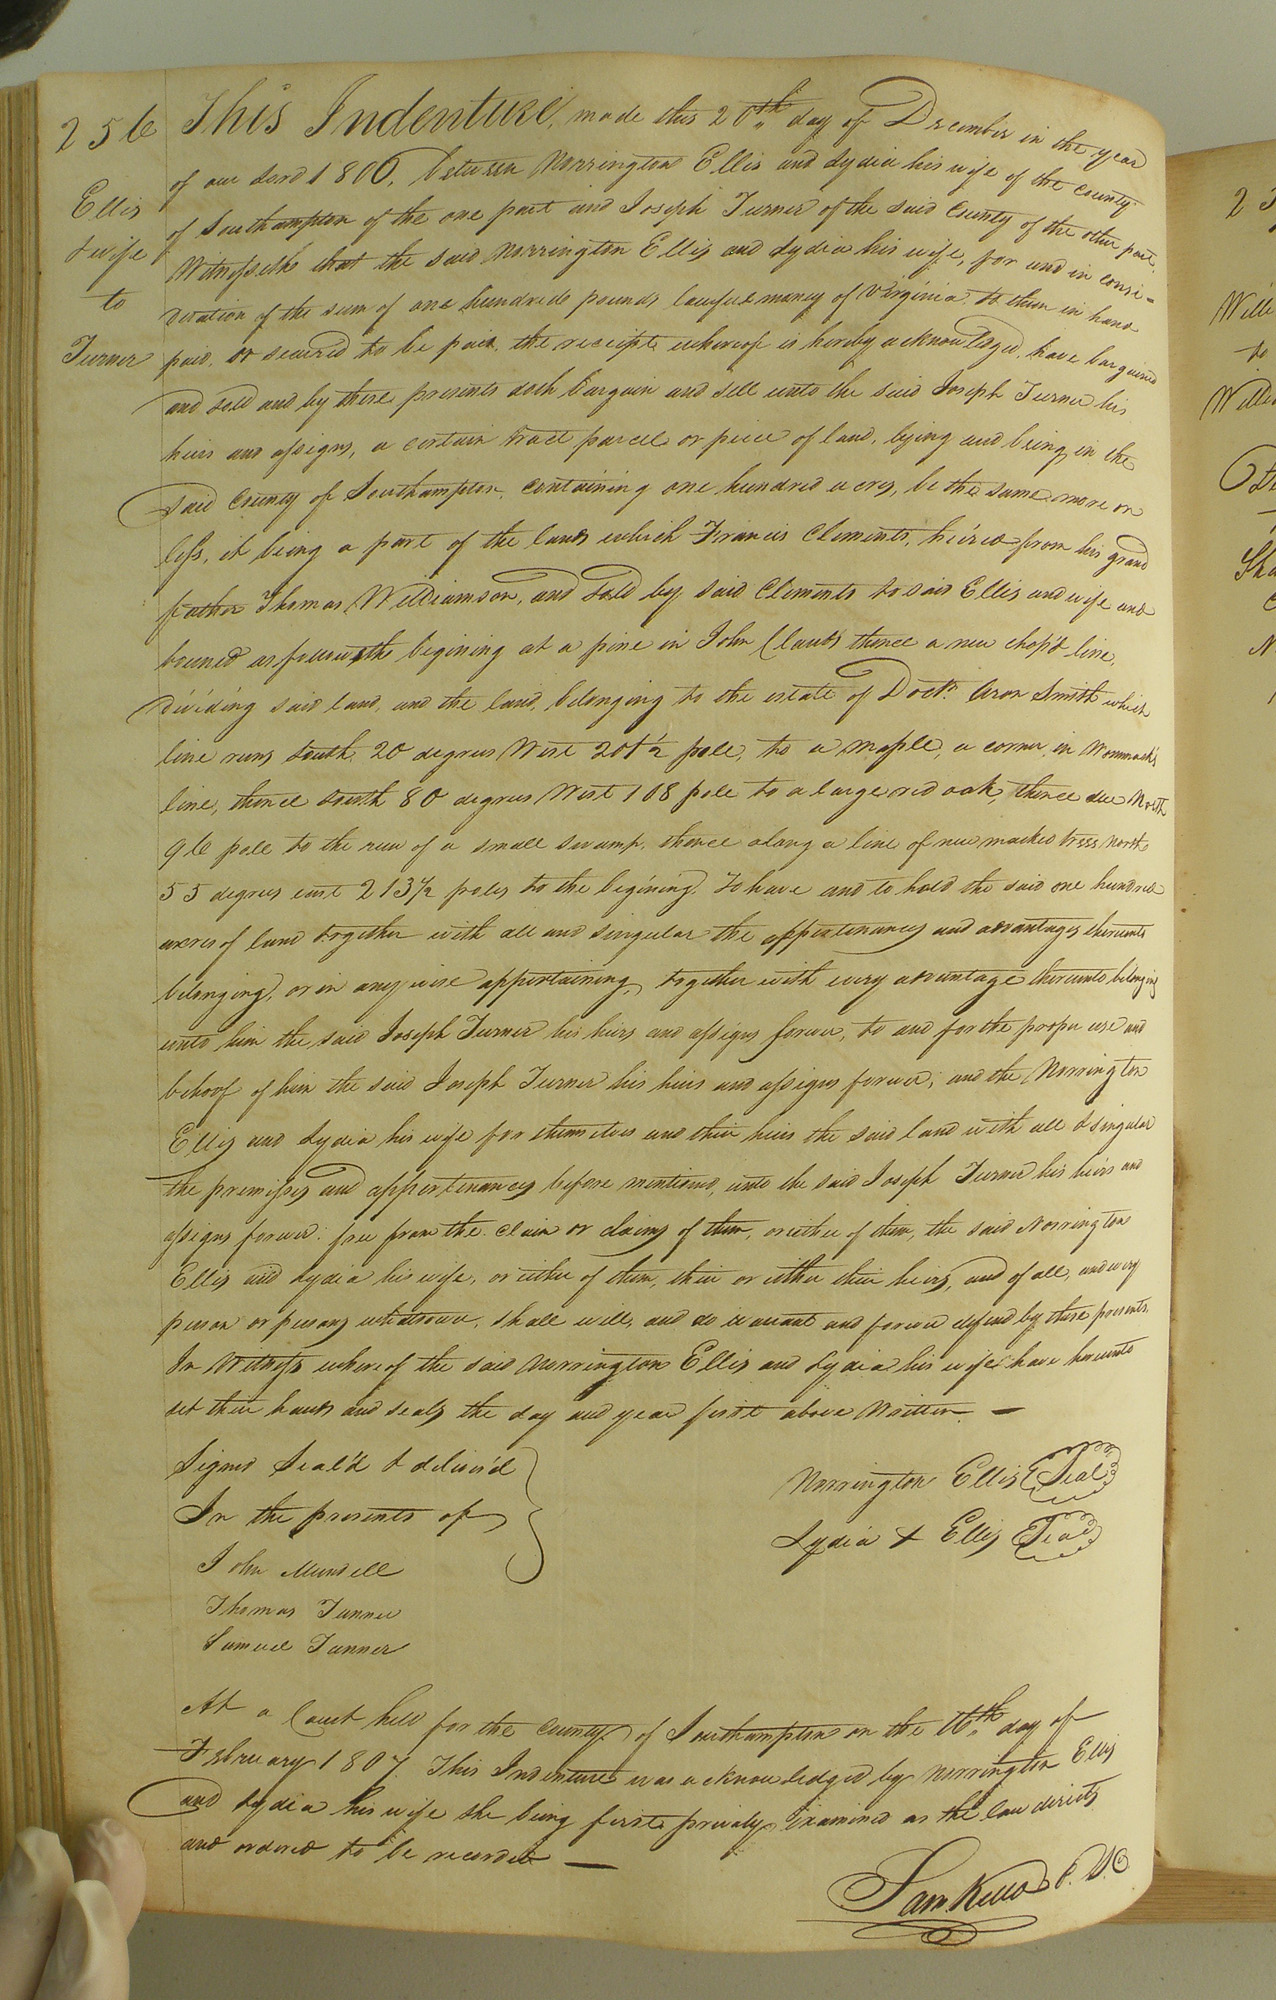 256
Ellis
& wife
to
Turner
This Indenture, made this 20th day of December in the year
of our Lord 1806, between Norrington Ellis and Lydia his wife of the County
of Southampton of the one part and Joseph Turner of the said County of the other part
Witnesseth that the said Norrington Ellis and Lydia his wife, for and in consi=
deration of the sum of one hundred pounds lawful money of Virginia to them in hand
paid, or secured to be paid, the receipt whereof is hereby acknowledged, have bargained
and sold and by these presents doth bargain and sell unto the said Joseph Turner his
heirs and assigns, a certain tract parcel or piece of land, lying and being in the
said County of Southampton, containing one hundred acres, be the same more or
less, it being a part of the land which Francis Clements, heired from his grand
father Thomas Williamson, and sold by said Clements to said Ellis and wife and
bound as followeth begining at a pine in John Clauds thence a new chop'd line,
dividing said land, and the land, belonging to the estate of Doctr. Aron Smith which
line runs South 20 degrees West 201½ pole, to a maple, a corner in Wommack's
line, thence South 80 degrees West 108 pole to a large red oak, thence due North
96 pole to the run of a small swamp, thence along a line of new marked trees North
55 degrees east 213½ poles to the begining. To have and to hold the said one hundred
acres of land together with all and singular the appertenances and advantages thereunto
belonging, or in any wise appertaining, together with every advantage thereunto belonging
unto him the said Joseph Turner his heirs and assigns forever, to and for the proper use and
behoof of him the said Joseph Turner his heirs and assigns forever; and the Norrington
Ellis and Lydia his wife for themselves and their heirs the said land with all & singular
the premisses and appertenances before mentioned, unto the said Joseph Turner his heirs and
assigns forever. free from the claim or claims of them, or either of them, the said Norrington
Ellis and Lydia his wife, or either of them, their or either their heirs, and of all, and every
person or persons whatsoever, shall will, and do warrant and forever defend by these presents.
In Witness whereof the said Norrington Ellis and Lydia his wife have hereunto
set their hands and seals the day and year first above Written —
Signed Seal'd & deliver'd
In the presents of
Norrington Ellis Seal
Lydia + Ellis Seal
John Mundell
Thomas Turner
Samuel Turner
At a Court held for the County of Southampton on the 16th day of
February 1807 This Indenture was acknowledged by Norrington Ellis
and Lydia his wife she being first privily Examined as the law directs
and ordered to be recorded —
Sam. Kello